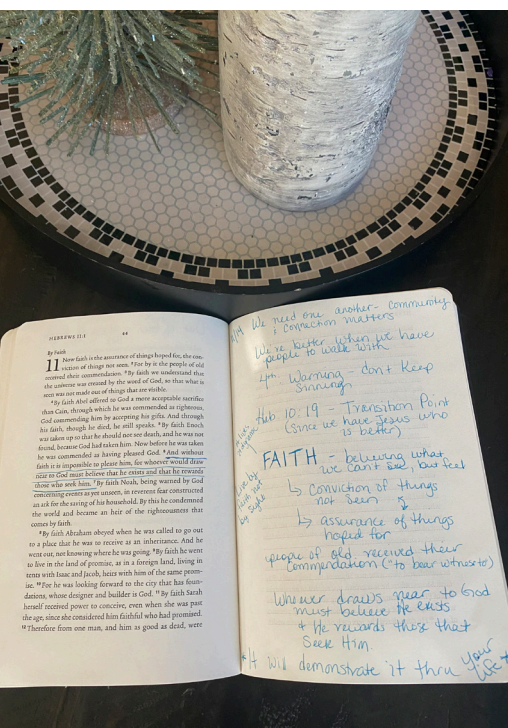 HEBREWS 11:1
44
By Faith
11 Now faith is the assurance of things hoped for, the con-
viction of things not seen. ²For by it the people of old
received their commendation. ³By faith we understand that
the universe was created by the word of God, so that what is
seen was not made out of things that are visible.
⁴By faith Abel offered to God a more acceptable sacrifice
than Cain, through which he was commended as righteous,
God commending him by accepting his gifts. And through
his faith, though he died, he still speaks. ⁵By faith Enoch
was taken up so that he should not see death, and he was not
found, because God had taken him. Now before he was taken
he was commended as having pleased God. ⁶And without
faith it is impossible to please him, for whoever would draw
near to God must believe that he exists and that he rewards
those who seek him. ⁷By faith Noah, being warned by God
concerning events as yet unseen, in reverent fear constructed
an ark for the saving of his household. By this he condemned
the world and became an heir of the righteousness that
comes by faith.
⁸By faith Abraham obeyed when he was called to go out
to a place that he was to receive as an inheritance. And he
went out, not knowing where he was going. ⁹By faith he went
to live in the land of promise, as in a foreign land, living in
tents with Isaac and Jacob, heirs with him of the same prom-
ise. ¹⁰For he was looking forward to the city that has foun-
dations, whose designer and builder is God. ¹¹By faith Sarah
herself received power to conceive, even when she was past
the age, since she considered him faithful who had promised.
¹²Therefore from one man, and him as good as dead, were
We need one another - community
+ connection matters
We're better when we have
people to walk with
4th Warning - don't keep
sinning
Heb 10:19 - Transition Point
(since we have Jesus who
is better)
FAITH - believing what
we can't see, but feel
↳ conviction of things
not seen
↳ assurance of things
hoped for
live by
faith not
by sight
people of old received their
commendation ("to bear witness to")
Whoever draws near to God
must believe He exists
+ He rewards those that
Seek Him.
*It will demonstrate it thru your
life*